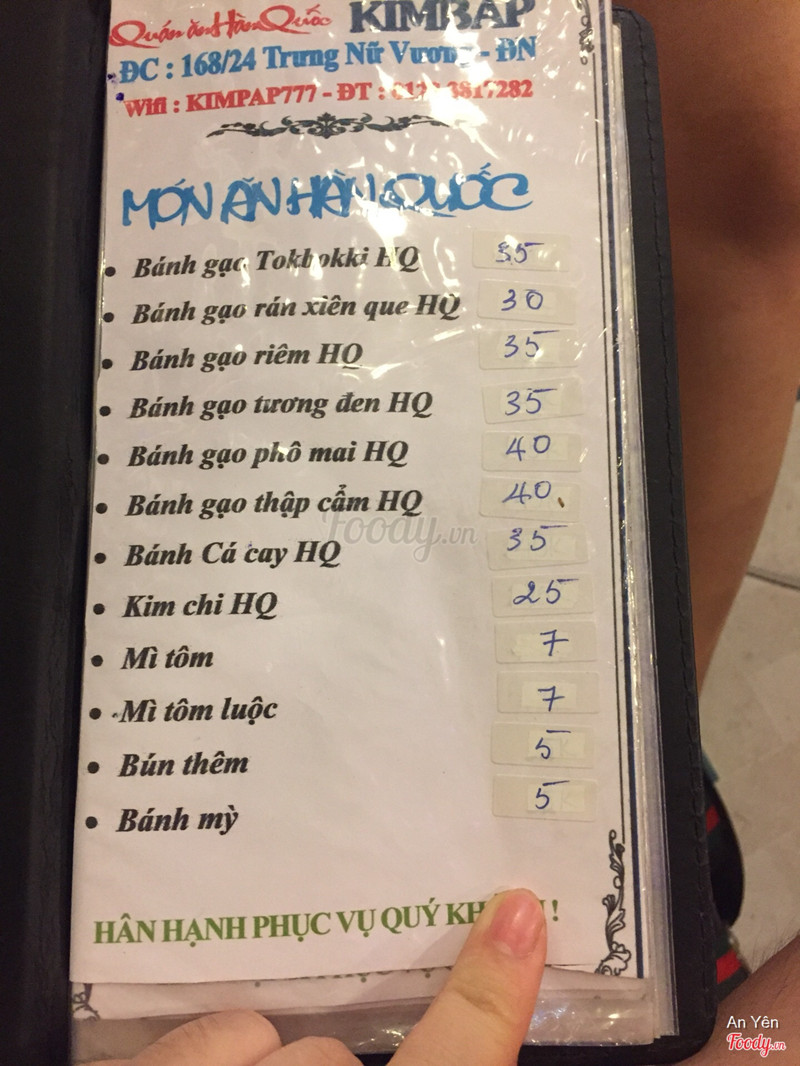 Quán ăn Hàn Quốc KIMBAP
ĐC : 168/24 Trưng Nữ Vương - ĐN
Wifi : KIMPAP777 - ĐT :
MÓN ĂN HÀN QUỐC
• Bánh gạo Tokbokki HQ 35
• Bánh gạo rán xiên que HQ 30
• Bánh gạo riêm HQ 35
• Bánh gạo tương đen HQ 35
• Bánh gạo phô mai HQ 40
• Bánh gạo thập cẩm HQ 40
• Bánh Cá cay HQ 35
• Kim chi HQ 25
• Mì tôm 7
• Mì tôm luộc 7
• Bún thêm 5
• Bánh mỳ 5
HÂN HẠNH PHỤC VỤ QUÝ !
Foody.vn
An Yên
Foody.vn